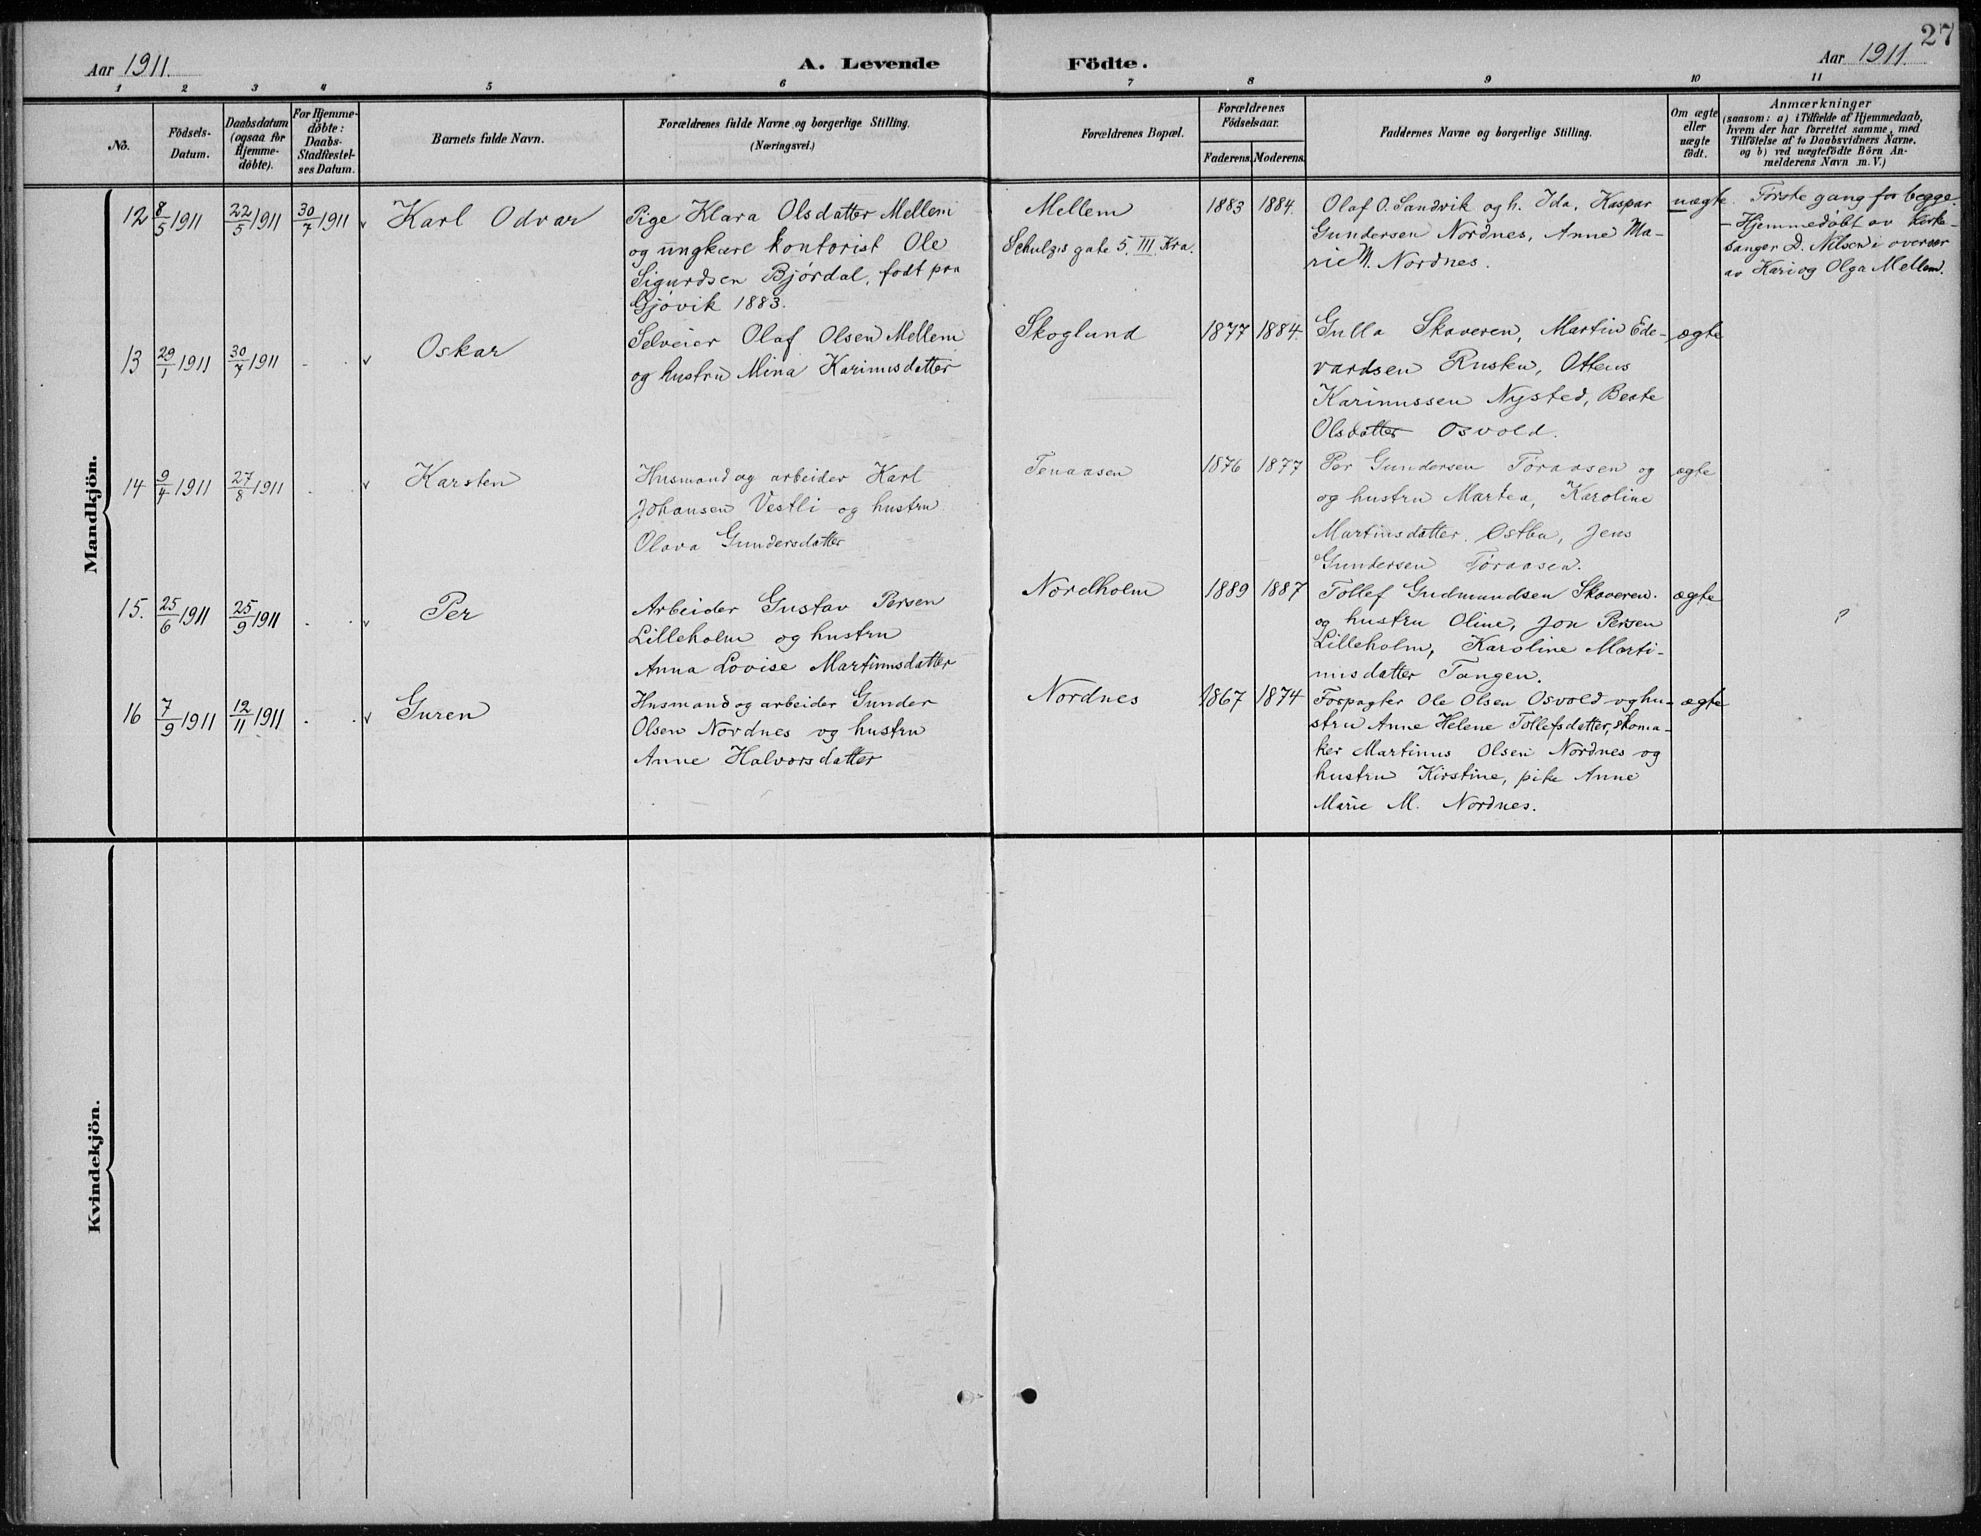 27
Aar 1911.
A. Levende Födte.
Aar 1911.
1 2 3 4 5 6 7 8 9 10 11
No.
Födsels-
Datum.
Daabsdatum
(ogsaa for
Hjemme-
döbte).
For Hjemme-
döbte:
Daabs-
Stadfæstel-
ses Datum.
Barnets fulde Navn.
Forældrenes fulde Navne og borgerlige Stilling.
(Næringsvei.)
Forældrenes Bopæl.
Forældrenes
Födselsaar.
Faderens. Moderens.
Faddernes Navne og borgerlige Stilling.
Om ægte
eller
uægte
födt.
Anmærkninger
(saasom: a) i Tilfælde af Hjemmedaab,
hvem der har forrettet samme, med
Tilföielse af to Daabsvidners Navne,
og b) ved uægtefödte Börn An-
melderens Navn m. V.)
Mandkjön.
12 8/5 1911 22/5 1911 30/7 1911 v Karl Odvar
Pige Klara Olsdatter Mellem
og ungkarl kontorist Ole
Sigurdsen Bjørdal, født paa
Gjøvik 1883.
Mellem
Schulzis gate 5. III. Kra.
1883 1884.
Olaf O. Sandvik og h. Ida, Kaspar
Gundersen Nordnes, Anne Ma-
rie M. Nordnes.
uægte.
Første gang for begge.
- Hjemmedøbt av kirke-
sanger D. Nilsen i overvær
av Kari og Olga Mellem.
13 29/1 1911 30/7 1911 . . v Oskar
Selveier Olaf Olsen Mellem
og hustru Mina Karinusdatter
Skoglund
1877 1884.
Gulla Skaveren, Martin Ede-
vardsen Rusten, Ottens
Karinussen Nysted, Beate
Olsdatter Osvold.
ægte
14 9/4 1911 27/8 1911 . . v Karsten
Husmand og arbeider Karl
Johansen Vestli og hustru
Olava Gundersdatter
Tenaasen
1876 1877
Per Gundersen Føraasen og
og hustru Martea, Karoline
Martinsdatter Østbu, Jens
Gundersen Føraasen.
ægte
15. 25/6 1911 25/9 1911 . . v Per
Arbeider Gustav Persen
Lilleholm og hustru
Anna Lovise Martinusdatter
Nordholm
1889 1887
Tollef Gudmundsen Skaveren.
og hustru Oline, Jon Persen
Lilleholm, Karoline Marti-
nusdatter Tangen.
ægte
?
16 7/9 1911 12/11 1911 . . v Guren
Husmand og arbeider Gunder
Olsen Nordnes og hustru
Anne Halvorsdatter
Nordnes
1867 1874
Forpagter Ole Olsen Osvold og hu-
stru Anne Helene Tollefsdatter, skoma-
ker Martinus Olsen Nordnes og
hustru Kirstine, pike Anne
Marie M. Nordnes.
ægte
Kvindekjön.